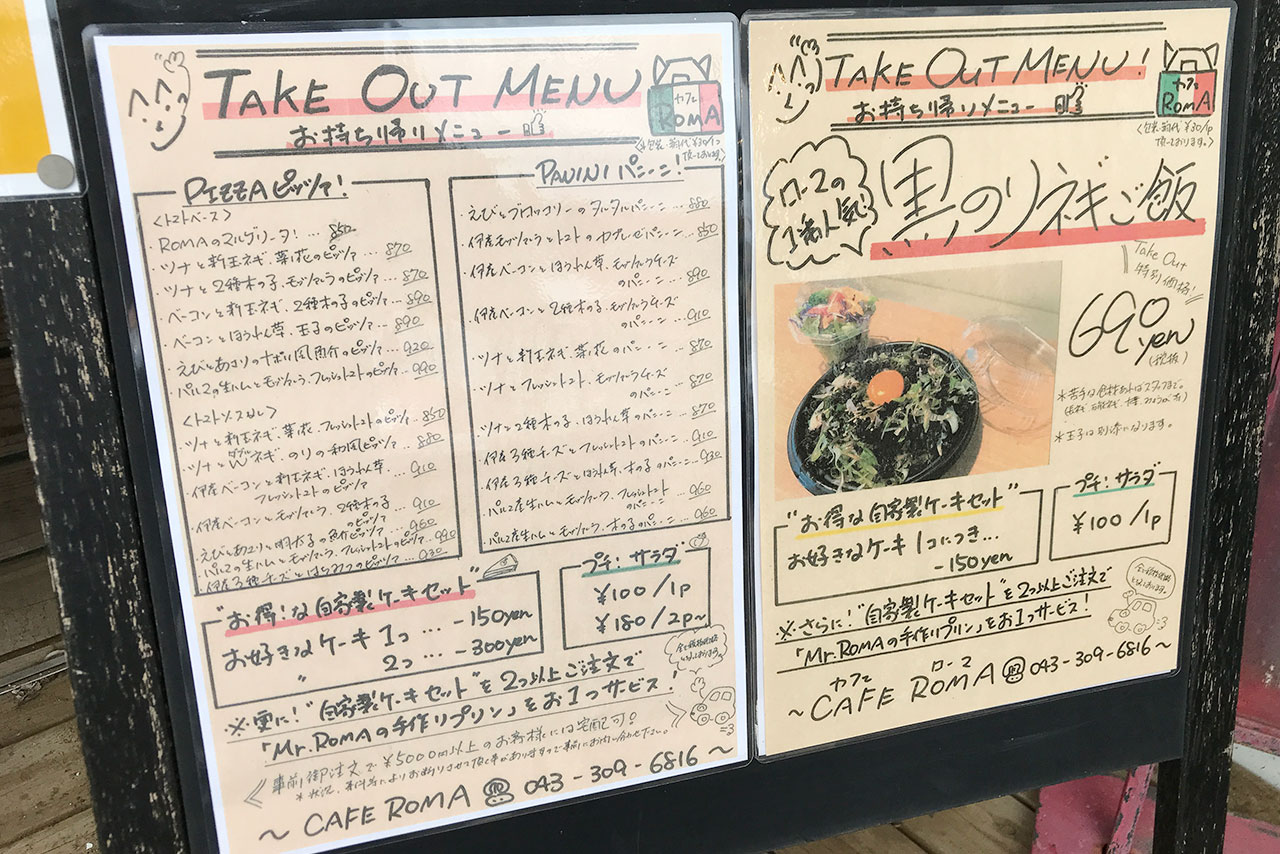 TAKE OUT MENU
お持ち帰りメニュー
カフェ
ROMA
PIZZA ピッツァ!
<トマトベース>
・ROMAのマルゲリータ! … 850
・ツナと新玉ネギ、菜の花のピッツァ … 870
・ツナと2種木の子、モッツァレラのピッツァ … 870
・ベーコンと新玉ネギ、2種木の子のピッツァ … 890
・ベーコンとほうれん草、玉子のピッツァ … 890
・えびとあさりの ピッツァ … 920
・パルマの生ハムとモッツァレラ、フレッシュトマトのピッツァ … 990
<トマトソースなし>
・ツナと新玉ネギ、菜の花、フレッシュトマトのピッツァ … 850
・ツナとWネギ、のりの和風ピッツァ … 880
ダブル
・伊産ベーコンと新玉ネギ、ほうれん草、
フレッシュトマトのピッツァ … 910
・伊産ベーコンとモッツァレラ、2種木の子
のピッツァ … 910
・えびとあさりと明太子の ピッツァ … 960
・パルマの生ハムとモッツァレラ、フレッシュトマトのピッツァ … 990
・伊産3種チーズとはちみつのピッツァ … 930
PANINI パニーニ!
・えびとブロッコリーのタルタルパニーニ … 880
・伊産モッツァレラとトマトのカプレーゼパニーニ … 850
・伊産ベーコンとほうれん草、モッツァレラチーズ
のパニーニ … 890
・伊産ベーコンと2種木の子、モッツァレラチーズ
のパニーニ … 910
・ツナと新玉ネギ、菜の花のパニーニ … 870
・ツナとフレッシュトマト、モッツァレラチーズ
のパニーニ … 870
・ツナと2種木の子、ほうれん草のパニーニ … 870
・伊産3種チーズとフレッシュトマトのパニーニ … 910
・伊産3種チーズとほうれん草、木の子のパニーニ … 930
・パルマ産生ハムとモッツァレラ、フレッシュトマト
のパニーニ … 960
・パルマ産生ハムとモッツァレラ、木の子のパニーニ … 960
"お得!な自家製ケーキセット"
お好きなケーキ 1つ … -150yen
〃 2つ … -300yen
プチ!サラダ
¥100/1p
¥180/2p~
※更に!"自家製ケーキセット"を2つ以上ご注文で
「Mr.ROMAの手作りプリン」をお1つサービス!
事前御注文で¥5000円以上のお客様には宅配可!
~CAFE ROMA 043-309-6816~
TAKE OUT MENU!
お持ち帰りメニュー
カフェ
ROMA
<包装・箱代¥30/1p
頂いております。>
ローマの
1番人気!
黒のりネギご飯
Take Out
特別価格!
690yen
(税抜)
※苦手な食材あればスタッフまで。
※玉子は別添になります。
"お得な自家製ケーキセット"
お好きなケーキ1コにつき…
-150yen
プチ!サラダ
¥100/1p
※さらに!"自家製ケーキセット"を2つ以上ご注文で
「Mr.ROMAの手作りプリン」をお1つサービス!
カフェ ローマ
~CAFE ROMA 043-309-6816~